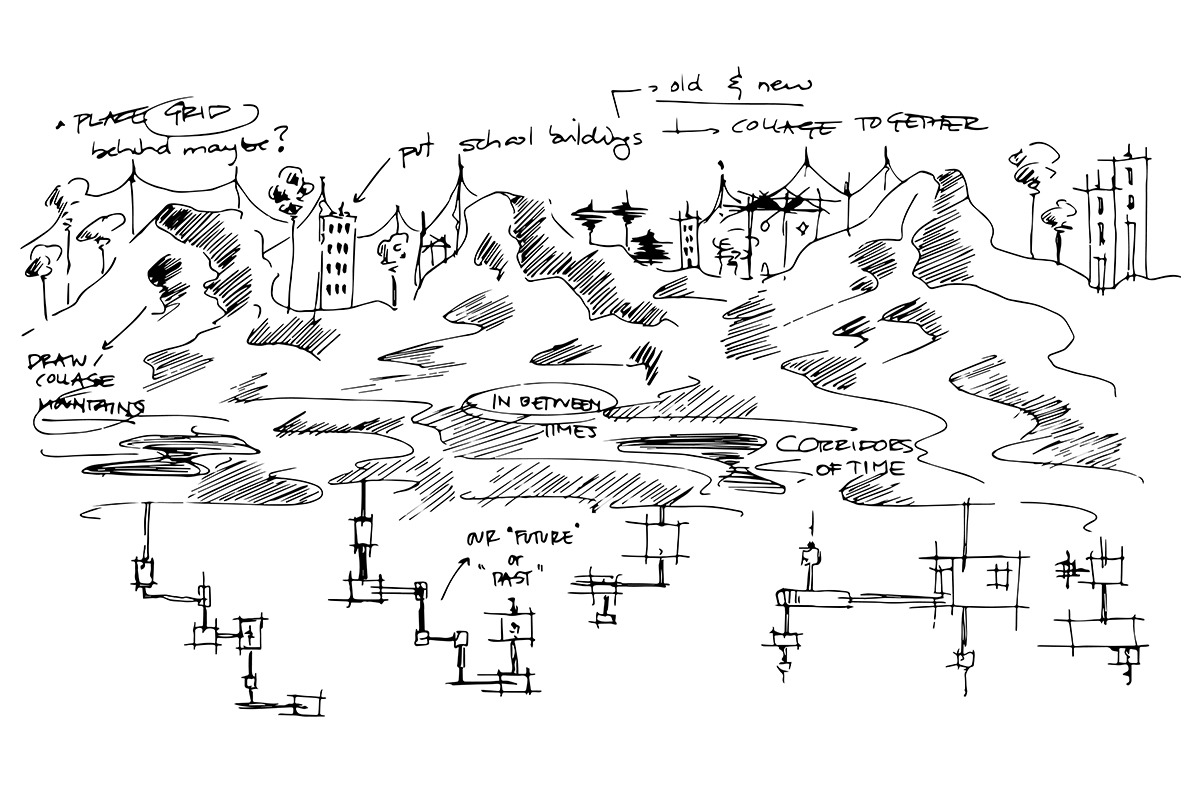 • PLACE GRID
behind maybe?
put school buildings
old & new
COLLAGE TOGETHER
DRAW/
COLLAGE
MOUNTAINS
IN BETWEEN
TIMES
CORRIDORS
OF TIME
OUR "FUTURE"
or
"PAST"